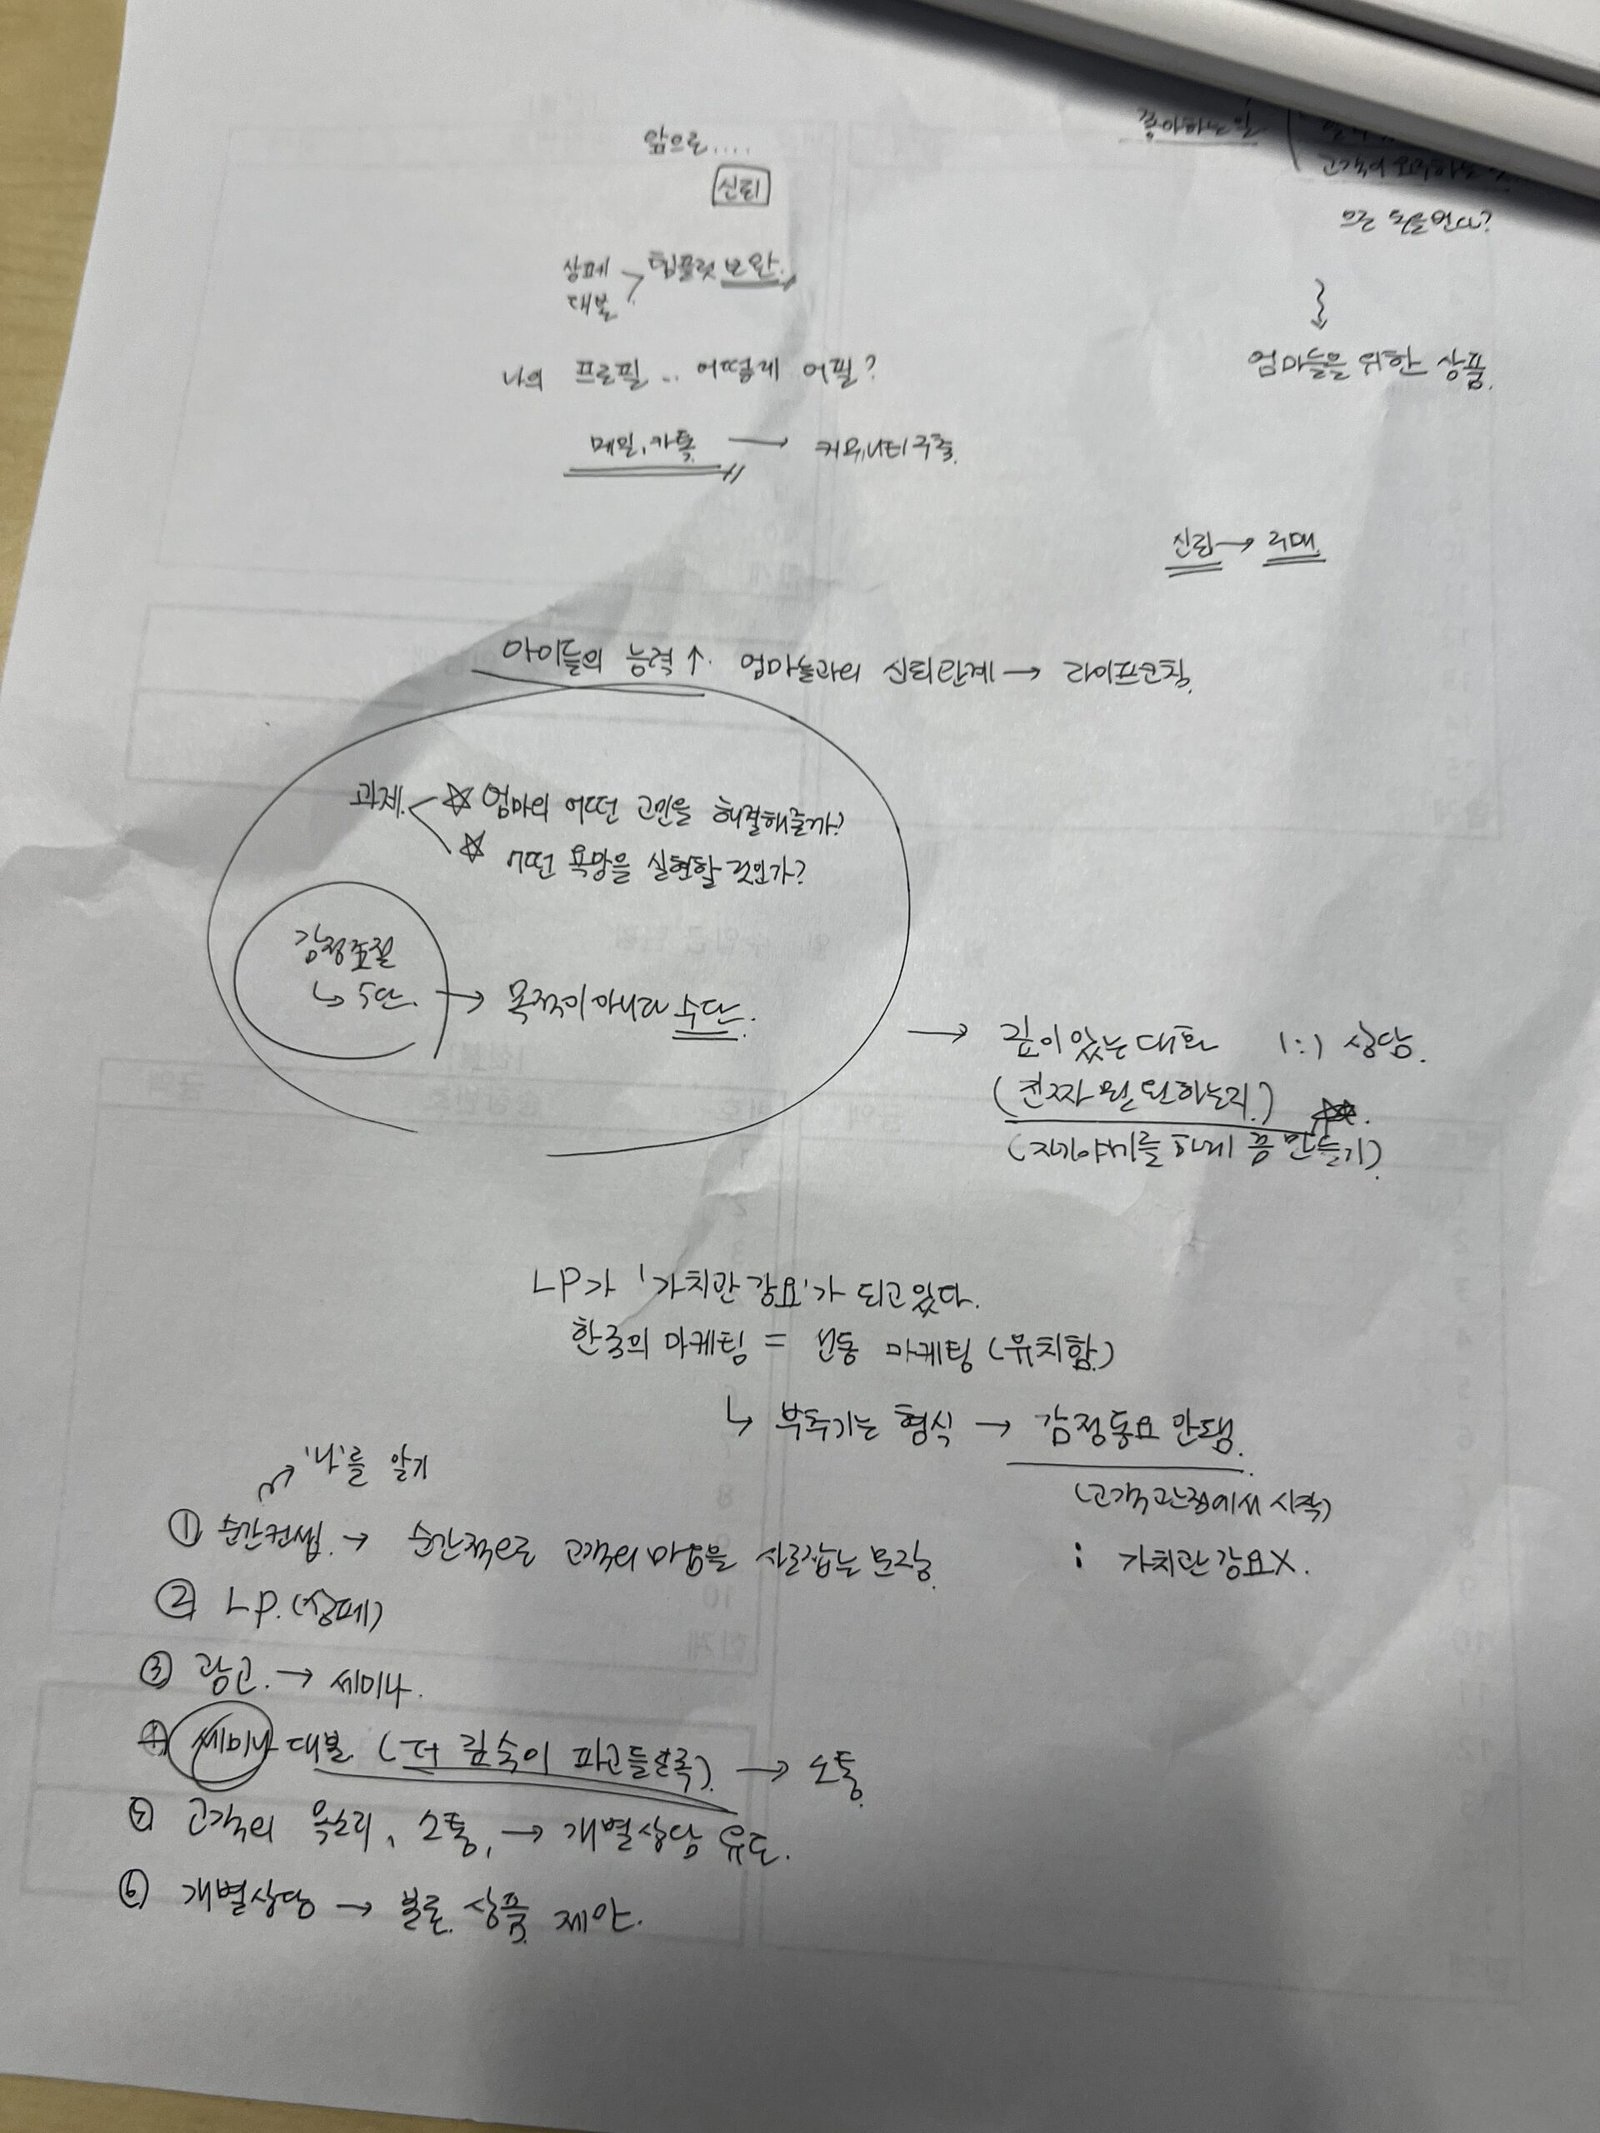 앞으로....
신뢰
좋아하는 일
고객이
으로 돈을 번다?
상페
대본 > 템플릿 보완.
엄마들을 위한 상품.
나의 프로필.. 어떻게 어필?
메일, 카톡 → 커뮤니티 구축.
신뢰 → 구매.
아이들의 능력↑. 엄마들과의 신뢰관계 → 라이프코칭.
과제. < ☆ 엄마의 어떤 고민을 해결해줄까?
☆ 어떤 욕망을 실현할 것인가?
감정조절
↳ 수단. → 목적이 아니라 수단.
→ 깊이 있는 대화 1:1 상담.
(진짜 뭘 원하는지.) ☆☆.
(자기얘기를 하게 끔 만들기)
LP가 '가치관 강요'가 되고 있다.
한국의 마케팅 = 선동 마케팅 (유치함.)
↳ 부추기는 형식 → 감정동요 안됨.
(고객관점에서 시작)
: 가치관 강요X.
'나'를 알기
① 순간컨셉. → 순간적으로 고객의 마음을 사로잡는 문장.
② LP. (상페)
③ 광고. → 세미나.
④ 세미나 대본 (더 깊숙이 파고들수록) → 소통.
⑤ 고객의 목소리, 소통, → 개별상담 유도.
⑥ 개별상담 → 본론. 상품 제안.